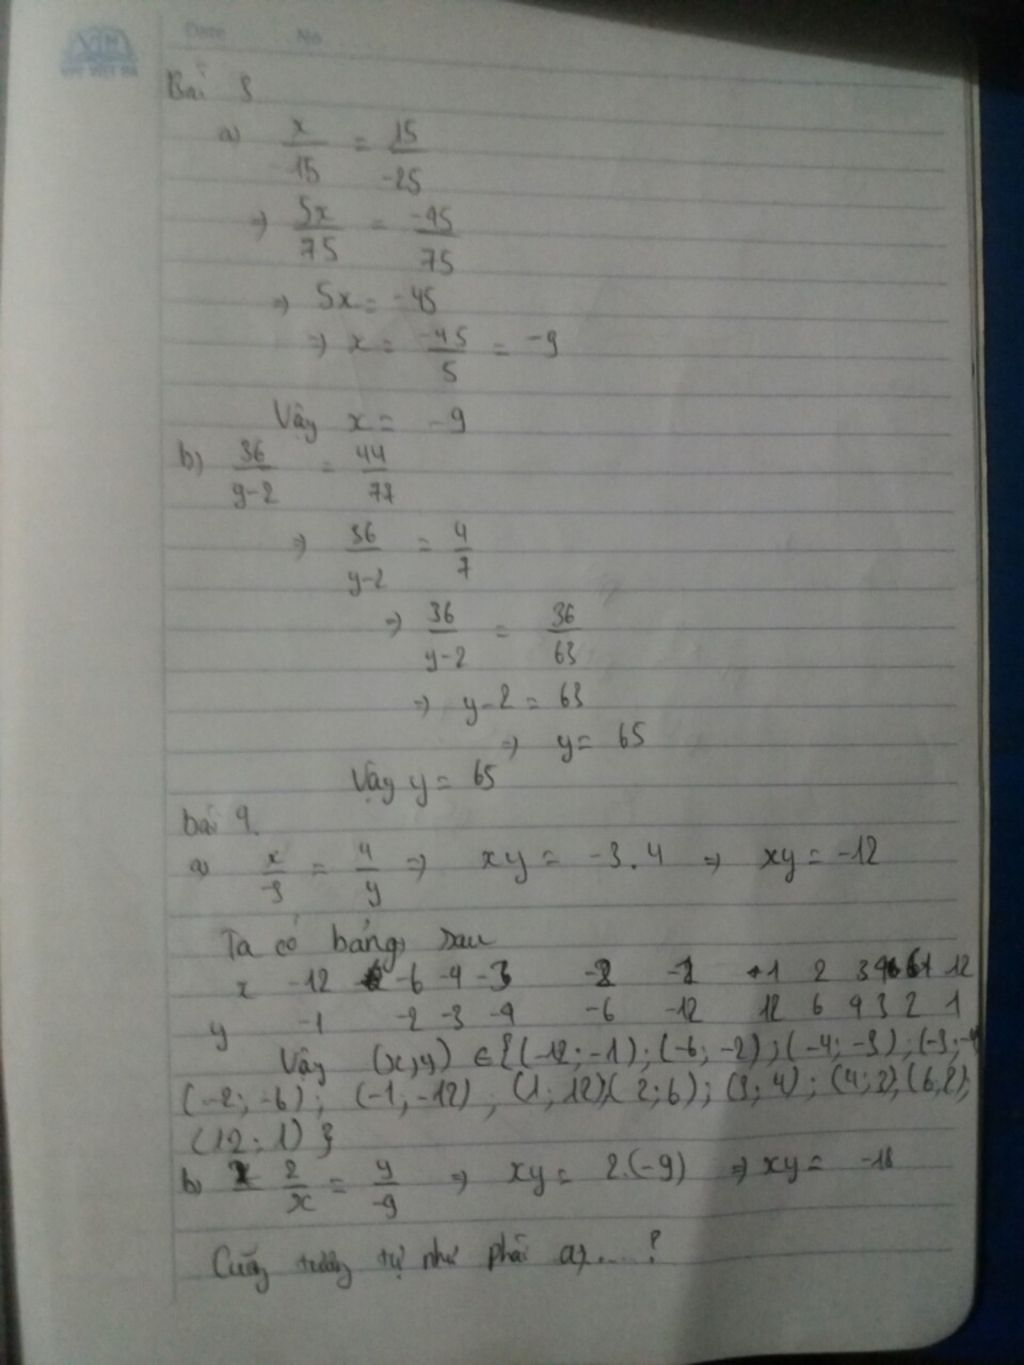 Date No
Bài 8
a) x/15 = 15/-25
⇒ 5x/75 = -45/75
⇒ 5x = -45
⇒ x = -45/5 = -9
Vậy x = -9
b) 36/y-2 = 44/77
⇒ 36/y-2 = 4/7
⇒ 36/y-2 = 36/63
⇒ y-2 = 63
⇒ y = 65
Vậy y = 65
bài 9.
a) x/-3 = 4/y ⇒ xy = -3.4 ⇒ xy = -12
Ta có bảng sau
x -12 -6 -4 -3 -2 -1 1 2 3 4 6 12
y -1 -2 -3 -4 -6 -12 12 6 4 3 2 1
Vậy (x,y) ∈ {(-12; -1); (-6; -2); (-4; -3); (-3; -4
(-2; -6); (-1; -12); (1; 12)(2; 6); (3; 4); (4; 3), (6;2);
(12; 1)}
b) 2/x = y/-9 ⇒ xy = 2.(-9) ⇒ xy = -18
Cũng tương tự như phần a).... ?